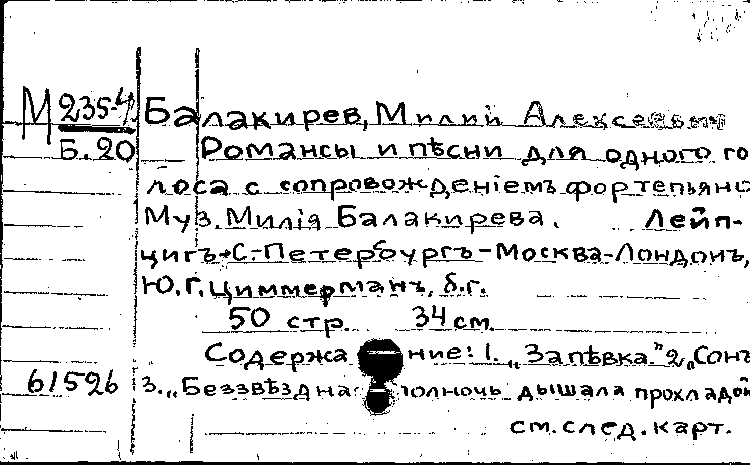 М 235-4 Балакирев, Милий Алексеевич
Б.20 Романсы и пѣсни для одного го
лоса с сопровожденіемъ фортепьяно
Муз. Милія Балакирева. Лейп-
цигъ-С.-Петербургъ-Москва-Лондонъ,
Ю.Г. Циммерманъ, б.г.
50 стр. 34 см.
Содержание: 1. „Запѣвка." 2. „Сонъ
61526 3. „Беззвѣздная полночь дышала прохладой
см. след. карт.